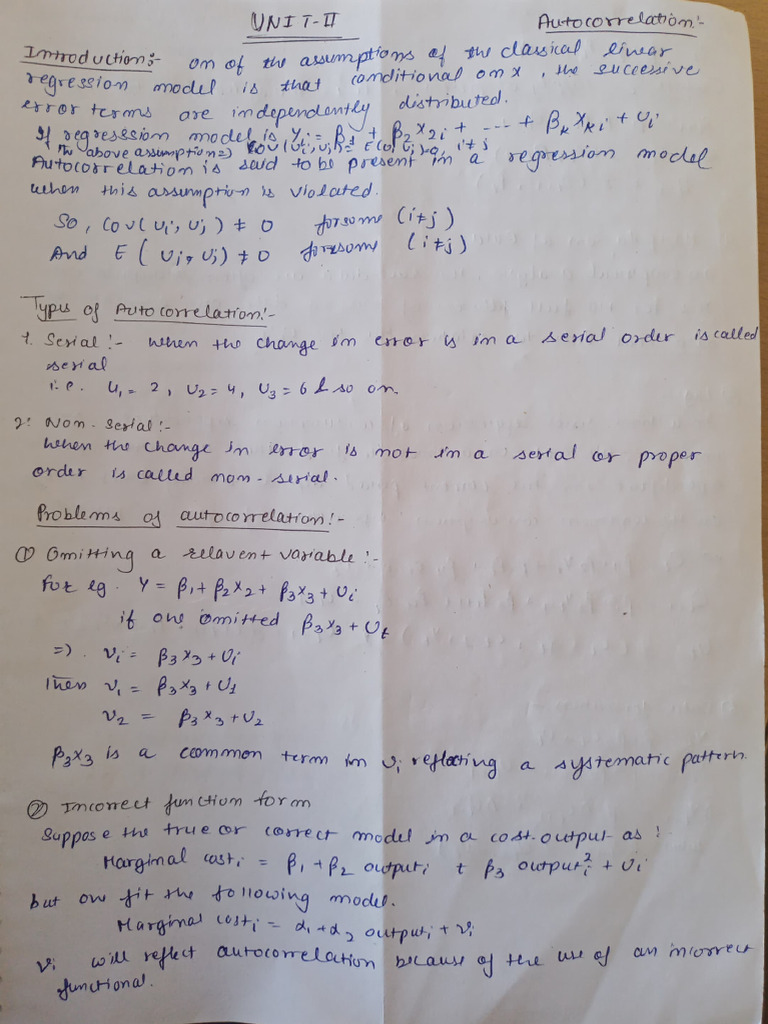 UNIT-II
Autocorrelation:-
Introduction:- on of the assumptions of the classical linear
regression model is that conditional on x, the successive
error terms are independently distributed.
If regression model is Yi = β1 + β2X2i + --- + βkXki + Ui
The above assumption => Cov(Ui, Uj) = E(Ui Uj) = 0, i≠j
Autocorrelation is said to be present in a regression model
when this assumption is violated.
So, Cov(Ui, Uj) ≠ 0 for some (i≠j)
And E(Ui, Uj) ≠ 0 for some (i≠j)
Types of Autocorrelation:-
1. Serial:- when the change in error is in a serial order is called
serial
i.e. U1 = 2, U2 = 4, U3 = 6 & so on.
2. Non-Serial:-
when the change in error is not in a serial or proper
order is called non-serial.
Problems of autocorrelation:-
① Omitting a relavent variable:-
For eg. Y = β1 + β2X2 + β3X3 + Ui
if one omitted β3X3 + Ut
=) vi = β3X3 + Ui
Then v1 = β3X3 + U1
v2 = β3X3 + U2
β3X3 is a common term in vi reflecting a systematic pattern.
② Incorrect function form
Suppose the true or correct model in a cost-output as:
Marginal costi = β1 + β2 outputi + β3 outputi² + Ui
but one fit the following model.
Marginal costi = α1 + α2 outputi + vi
vi will reflect autocorrelation because of the use of an incorrect
functional.